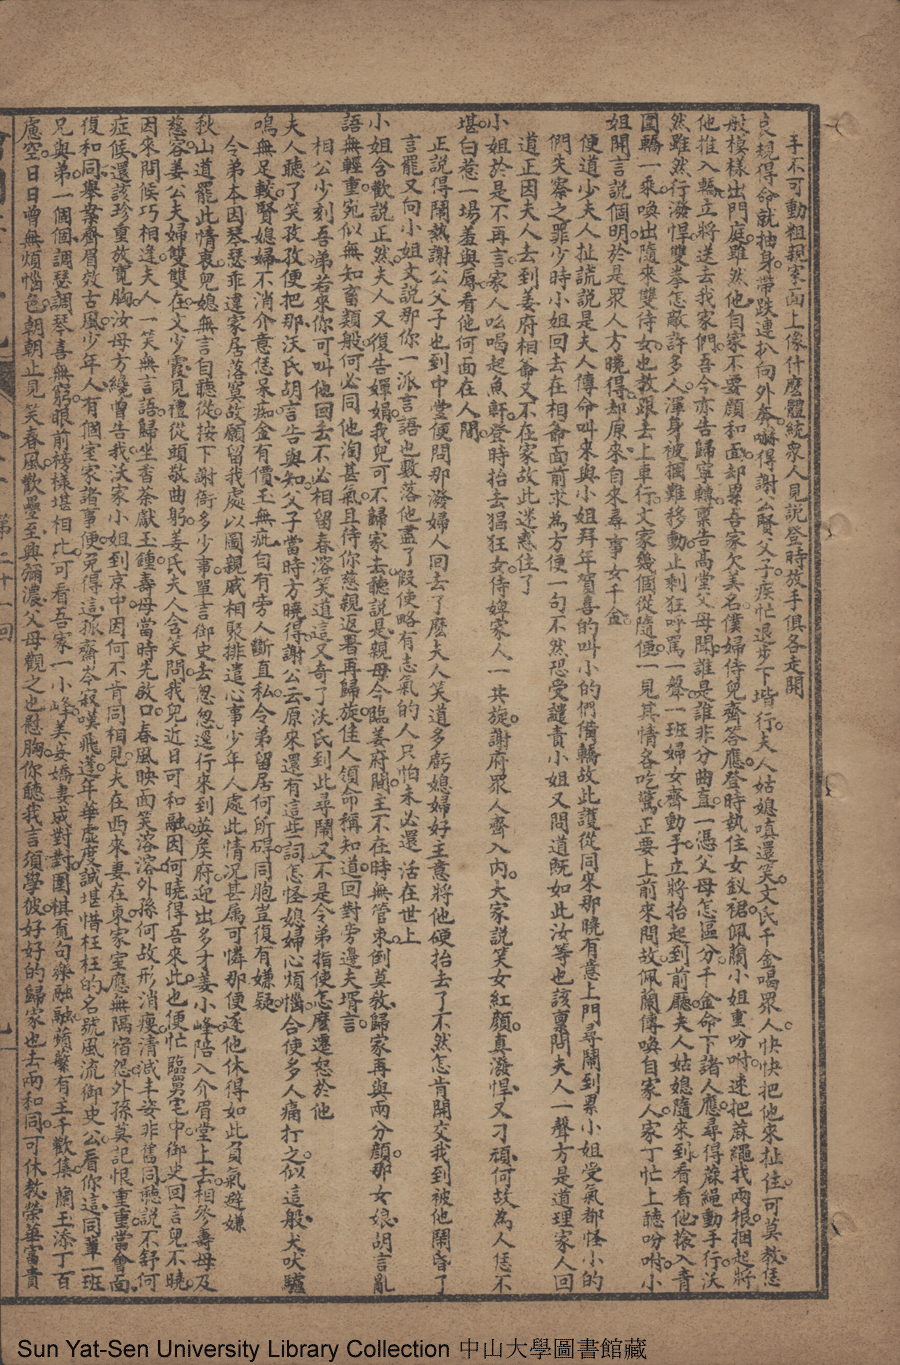 手不可動粗親家面上像什麽體統衆人見說登時放手俱各走開
良規得命就抽身帶跌連扒向外奔嚇得謝公賢父子疾忙退步下堦行夫人姑媳嗔還笑文氏千金喝眾人快快把他來扯住可莫教恁
般模樣出門庭雖然他自家不要顏和面却累吾家欠美名僕婦侍兒齊答應登時執住女釵裙佩蘭小姐重吩咐速把蔴繩找兩根捆起將
他推入轎立將送去我家們吾今亦告歸寧轉禀告高堂父母聞誰是誰非分曲直一憑父母怎區分千金命下諸人應尋得蔴繩動手行沃
然雖然行潑悍雙拳怎敵許多人渾身被捆難移動止剩狂呼罵一聲一班婦女齊動手立將抬起到前廳夫人姑媳隨來到看看他搇入青
圍轎一乘喚出隨來雙侍女也教跟去上車行文家幾個從隨使一見其情各吃驚正要上前來問故佩蘭傳喚自家人家丁忙上聽吩咐小
姐開言說個明於是眾人方曉得却原來自來尋事女千金
便道少夫人扯謊說是夫人傳命叫來與小姐拜年賀喜的叫小的們備轎故此護從同來那曉有意上門尋鬧到累小姐受氣都怪小的
們失察之罪少時小姐回去在相爺面前求為方便一句不然恐受譴責小姐又問道既如此汝等也該禀問夫人一聲方是道理家人回
道正因夫人去到姜府相爺又不在家故此迷惑住了
小姐於是不再言家人吆喝起魚軒登時抬去猖狂女侍婢家人一共旋謝府眾人齊入內大家說笑女紅顏真潑悍又刁頑何故為人恁不
堪白惹一場羞與辱看他何面在人間
正說得鬧熱謝公父子也到中堂便問那潑婦人回去了麽夫人笑道多虧媳婦好主意將他硬抬去了不然怎肯開交我到被他鬧昏了
言罷又向小姐文說那你一派言語也數落他盡了假使略有志氣的人只怕未必還活在世上
小姐含歡說正然夫人又復告嬋娟我兒可不歸家去聽說是親母今臨姜府間主不在時無管束倒莫教歸家再與兩分顏那女娘胡言亂
語無輕重宛似無知畜類般何必同他淘甚氣且待你慈親返署再歸旋佳人領命稱知道回對旁邊夫壻言
相公少刻吾弟若來你可叫他回去不必相留春溶笑道這又奇了沃氏到此尋鬧又不是令弟指使怎麼遷怒於他
夫人聽了笑孜孜便把那沃氏胡言告與知父子當時方曉得謝公云原來還有這些詞怎怪媳婦心煩惱合使多人痛打之似這般犬吠驢
鳴無足較賢媳婦不消介意恁呆痴金有價玉無疵自有旁人斷直私令弟留居何所碍同胞豈復有嫌疑
令弟本因琴瑟乖違家居落寞故願留我處以圖親戚相聚排遣心事少年人處此情况甚屬可憐那便逐他休得如此負氣避嫌
秋山道罷此情衷兒媳無言自聽從按下謝衙多少事單言御史去怱怱還行來到英矦府迎出多才姜小峰陪入介眉堂上去相參壽母及
慈容姜公夫婦雙雙在文少霞見禮從頭敬曲躬姜氏夫人含笑問我兒近日可和融因何曉得吾來此也便忙臨舅宅中御史回言兒不曉
因來問候巧相逢夫人一笑無言語歸坐香荼獻玉鍾壽母當時先啟口春風映面笑溶溶外孫何故形消瘦清減丰姿非舊同聽說不舒何
症候還該珍重放寬胸汝母方纔曾告我沃家小姐到京中因何不肯同相見夫在西來妻在東家室應無隔宿怨外孫莫記恨重重當會面
復和同舉案齊眉效古風少年人有個宅家諸事便免得這孤齋岑寂嘆飛蓬年華虛度誠堪惜枉枉的名號風流御史公看你這同輩一班
兄與弟一個個調瑟調琴喜無窮眼前榜樣堪相比可看吾家一小峰美妾嬌妻成對對圍棋覓句樂融融蘋蘩有主千歡集蘭玉添丁百
慮空日日曾無煩惱色朝朝止見笑春風歡疊至興彌濃父母觀之也慰胸你聽我言須學彼好好的歸家也去兩和同可休教榮華富貴
第二十一回
Sun Yat-Sen University Library Collection 中山大學圖書館藏